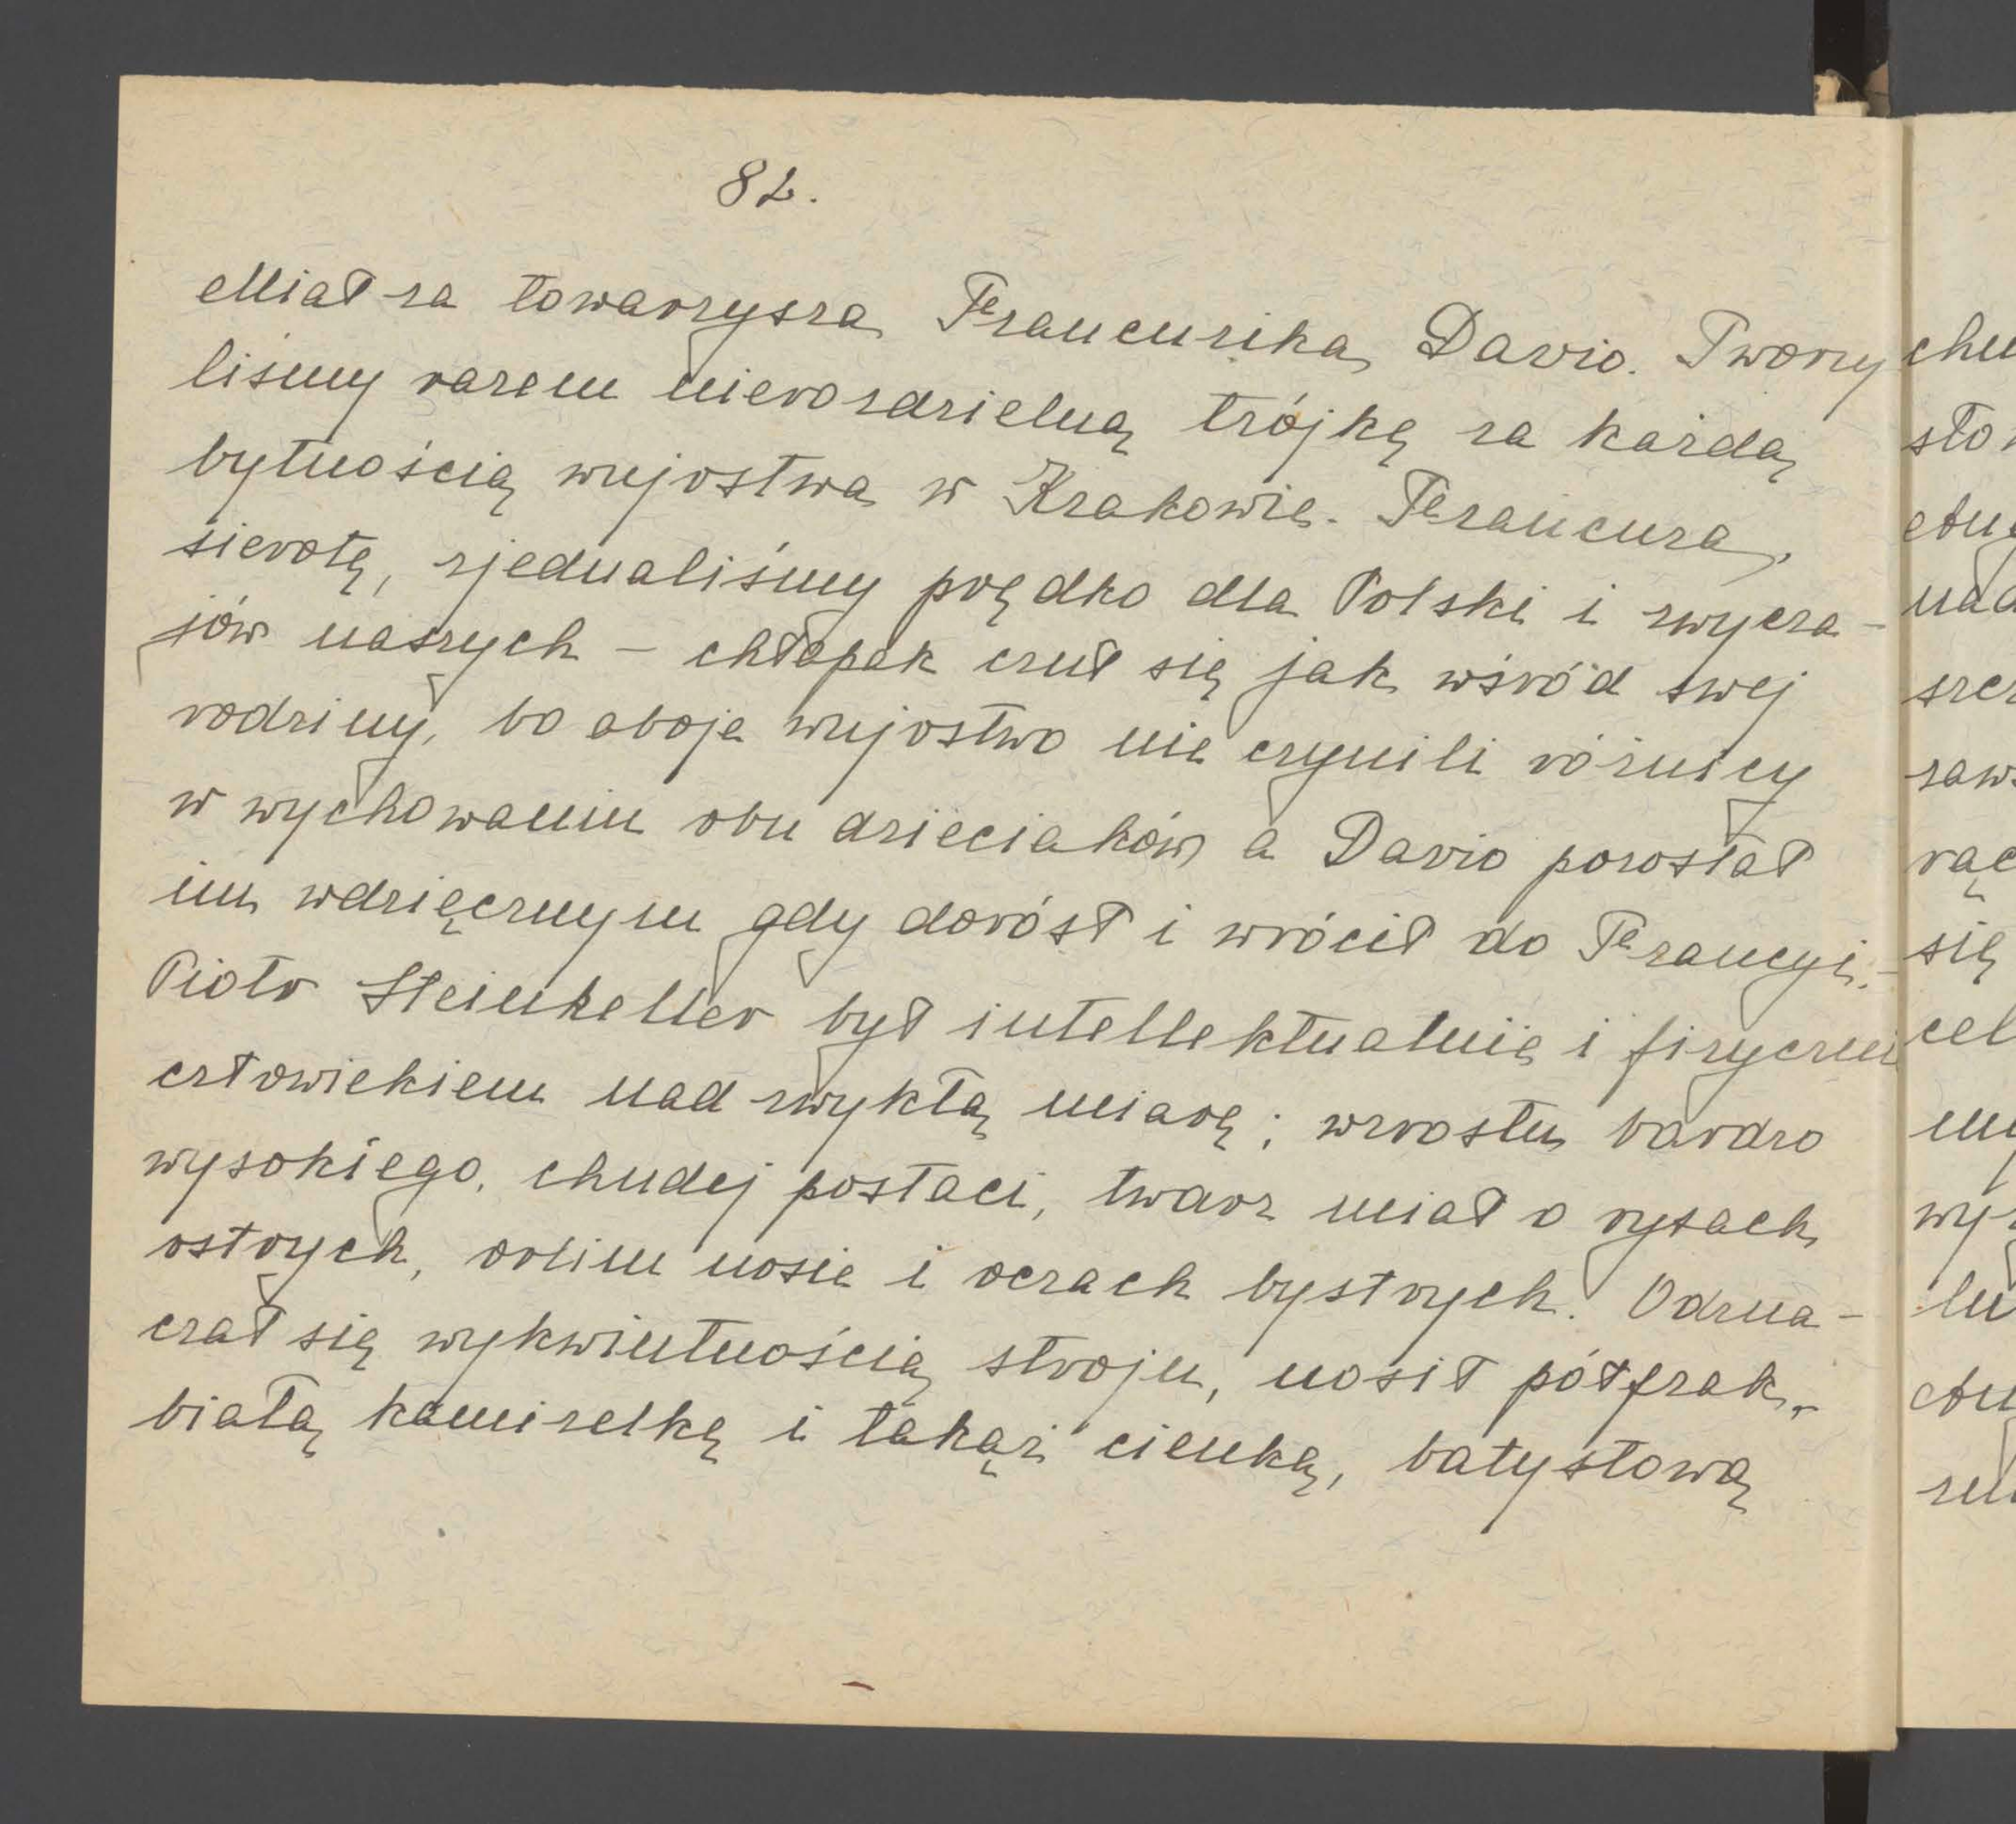 82.
Miał za towarzysza Francuzika Davio. Tworzy
liśmy razem nierozdzielną trójkę za każdą
bytnością wujostwa w Krakowie. Francuza,
sierotę, zjednaliśmy prędko dla Polski i zwycza-
jów naszych – chłopak czuł się jak wśród swej
rodziny, bo oboje wujostwo nie czynili różnicy
w wychowaniu obu dzieciaków a Davio pozostał
im wdzięcznym gdy dorósł i wrócił do Francyi.-
Piotr Steinkeller był intellektualnie i fizyczni
człowiekiem nad zwykłą miarę; wzrostu bardzo
wysokiego, chudej postaci, twarz miał o rysach
ostrych, orlim nosie i oczach bystrych. Odzna-
czał się wykwintnością stroju, nosił półfrak,
białą kamizelkę i takąż cienką, batystową
chu
sło
nad
szcz
zaw
rąc
się
cel
my
wy
lu